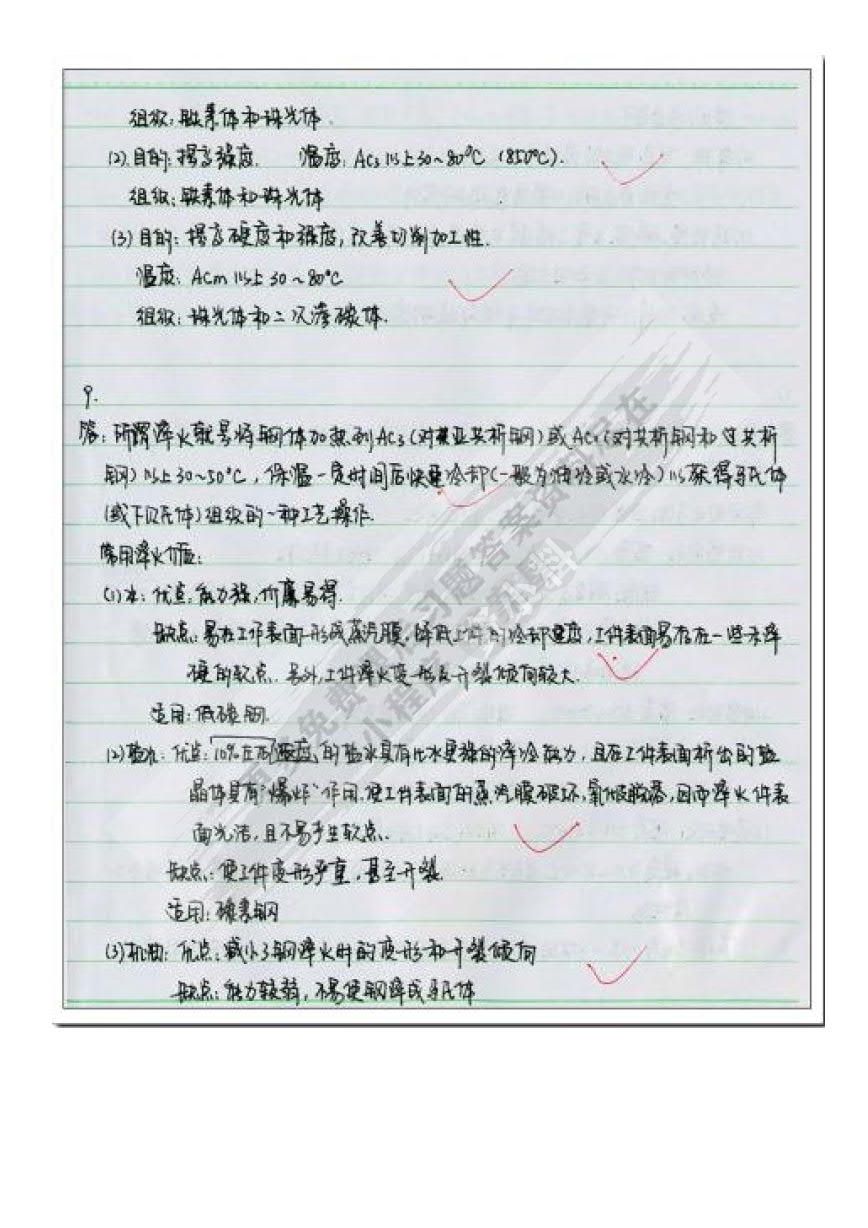 组织：铁素体和珠光体.
(2).目的：提高强度. 温度：Ac₃以上30~80℃ (850℃).
组织：铁素体和珠光体
(3)目的：提高硬度和强度，改善切削加工性.
温度：Acm以上30~80℃
组织：珠光体和二次渗碳体.
9.
答：所谓淬火就是将钢件加热到Ac₃(对亚共析钢)或Ac₁(对共析钢和过共析
钢)以上30~50℃，保温一定时间后快速冷却(一般为油冷或水冷)以获得马氏体
(或下贝氏体)组织的一种工艺操作.
常用淬火介质：
(1)水：优点：能力强，价廉易得.
缺点：易在工件表面形成蒸汽膜，降低工件的冷却速度，工件表面易存在一些未淬
硬的软点. 另外，工件淬火变形及开裂倾向较大.
适用：低碳钢.
(2)盐水：优点：10%左右的盐水具有比水更强的淬冷能力，且在工件表面析出的盐
晶体具有"爆炸"作用，使工件表面的蒸汽膜破坏，氧化皮脱落，因而淬火件表
面光洁，且不易产生软点.
缺点：使工件变形严重，甚至开裂.
适用：碳素钢
(3)机油：优点：减小了钢淬火时的变形和开裂倾向
缺点：能力较弱，不易使钢淬成马氏体